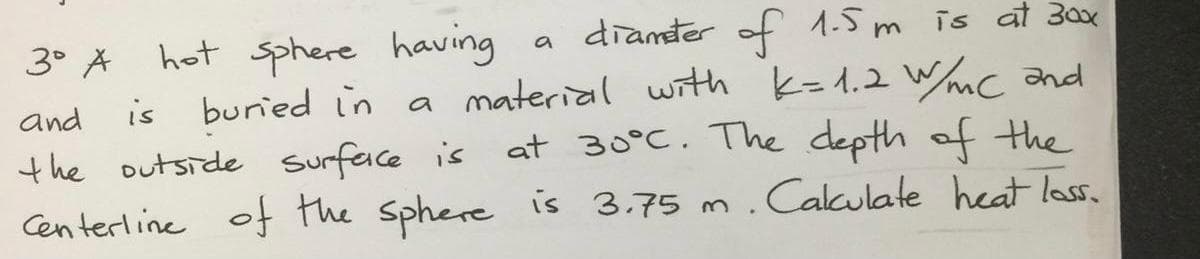 3° A hot sphere having a diameter of 1.5 m is at
and is buried in a material with k=1.2 W/mC and
the outside surface is at 30°C. The depth of the
Centerline of the sphere is 3.75 m. Calculate heat loss.